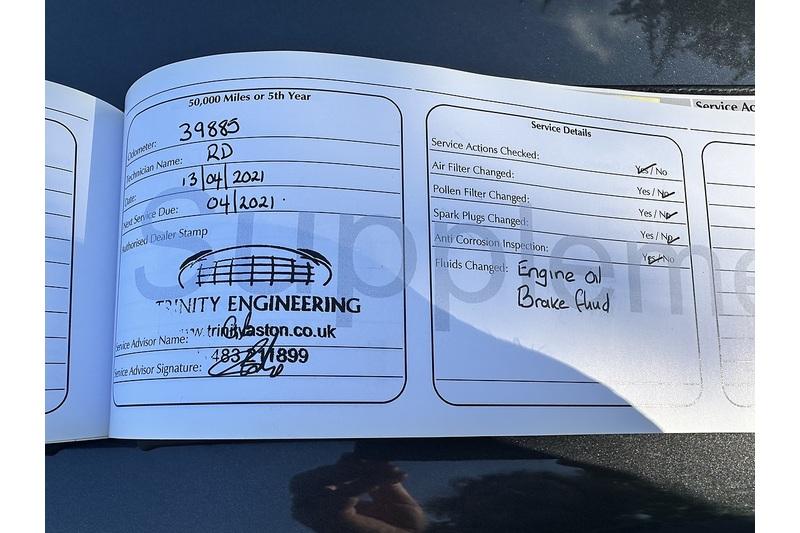 50,000 Miles or 5th Year
Odometer: 39885
Technician Name: RD
Date: 13/04/2021
Next Service Due: 04/2021.
Authorised Dealer Stamp
TRINITY ENGINEERING
www.trinityaston.co.uk
Service Advisor Name:
483 211899
Service Advisor Signature:
Service Details
Service Actions Checked:
Yes / No
Air Filter Changed:
Yes / No
Pollen Filter Changed:
Yes / No
Spark Plugs Changed:
Yes / No
Anti Corrosion Inspection:
Yes / No
Fluids Changed: Engine oil
Brake fluid
Service Ac
Suppleme